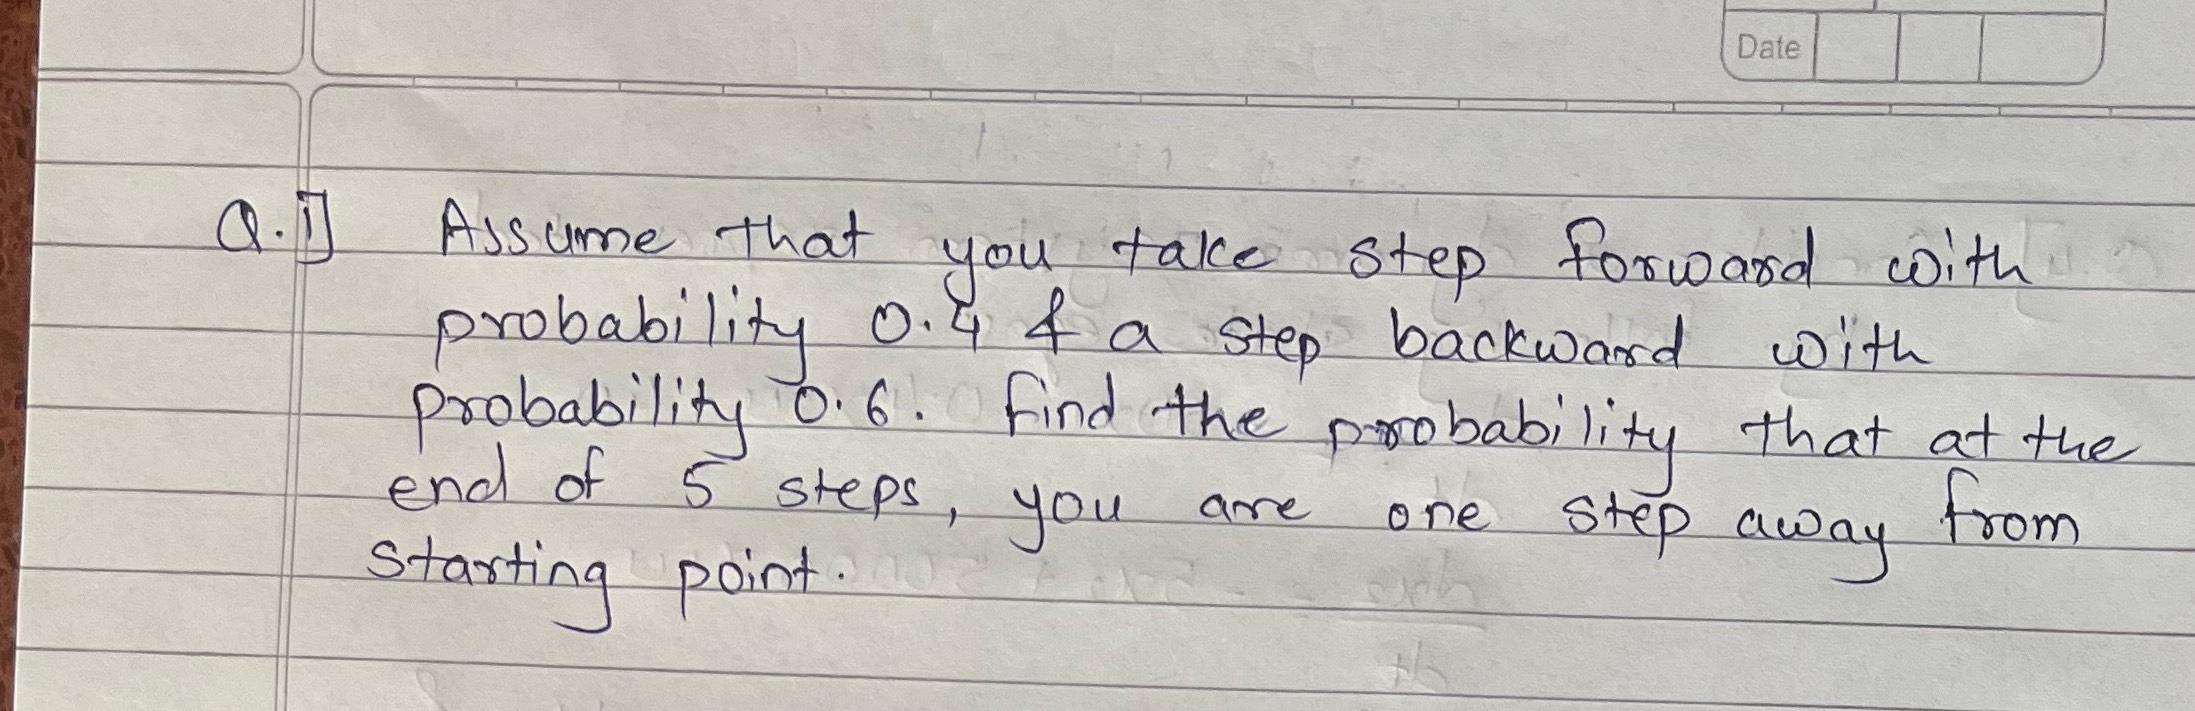 Date
Q.1] Assume that you take step forward with
probability 0.4 & a step backward with
probability 0.6. find the probability that at the
end of 5 steps, you are one step away from
starting point.